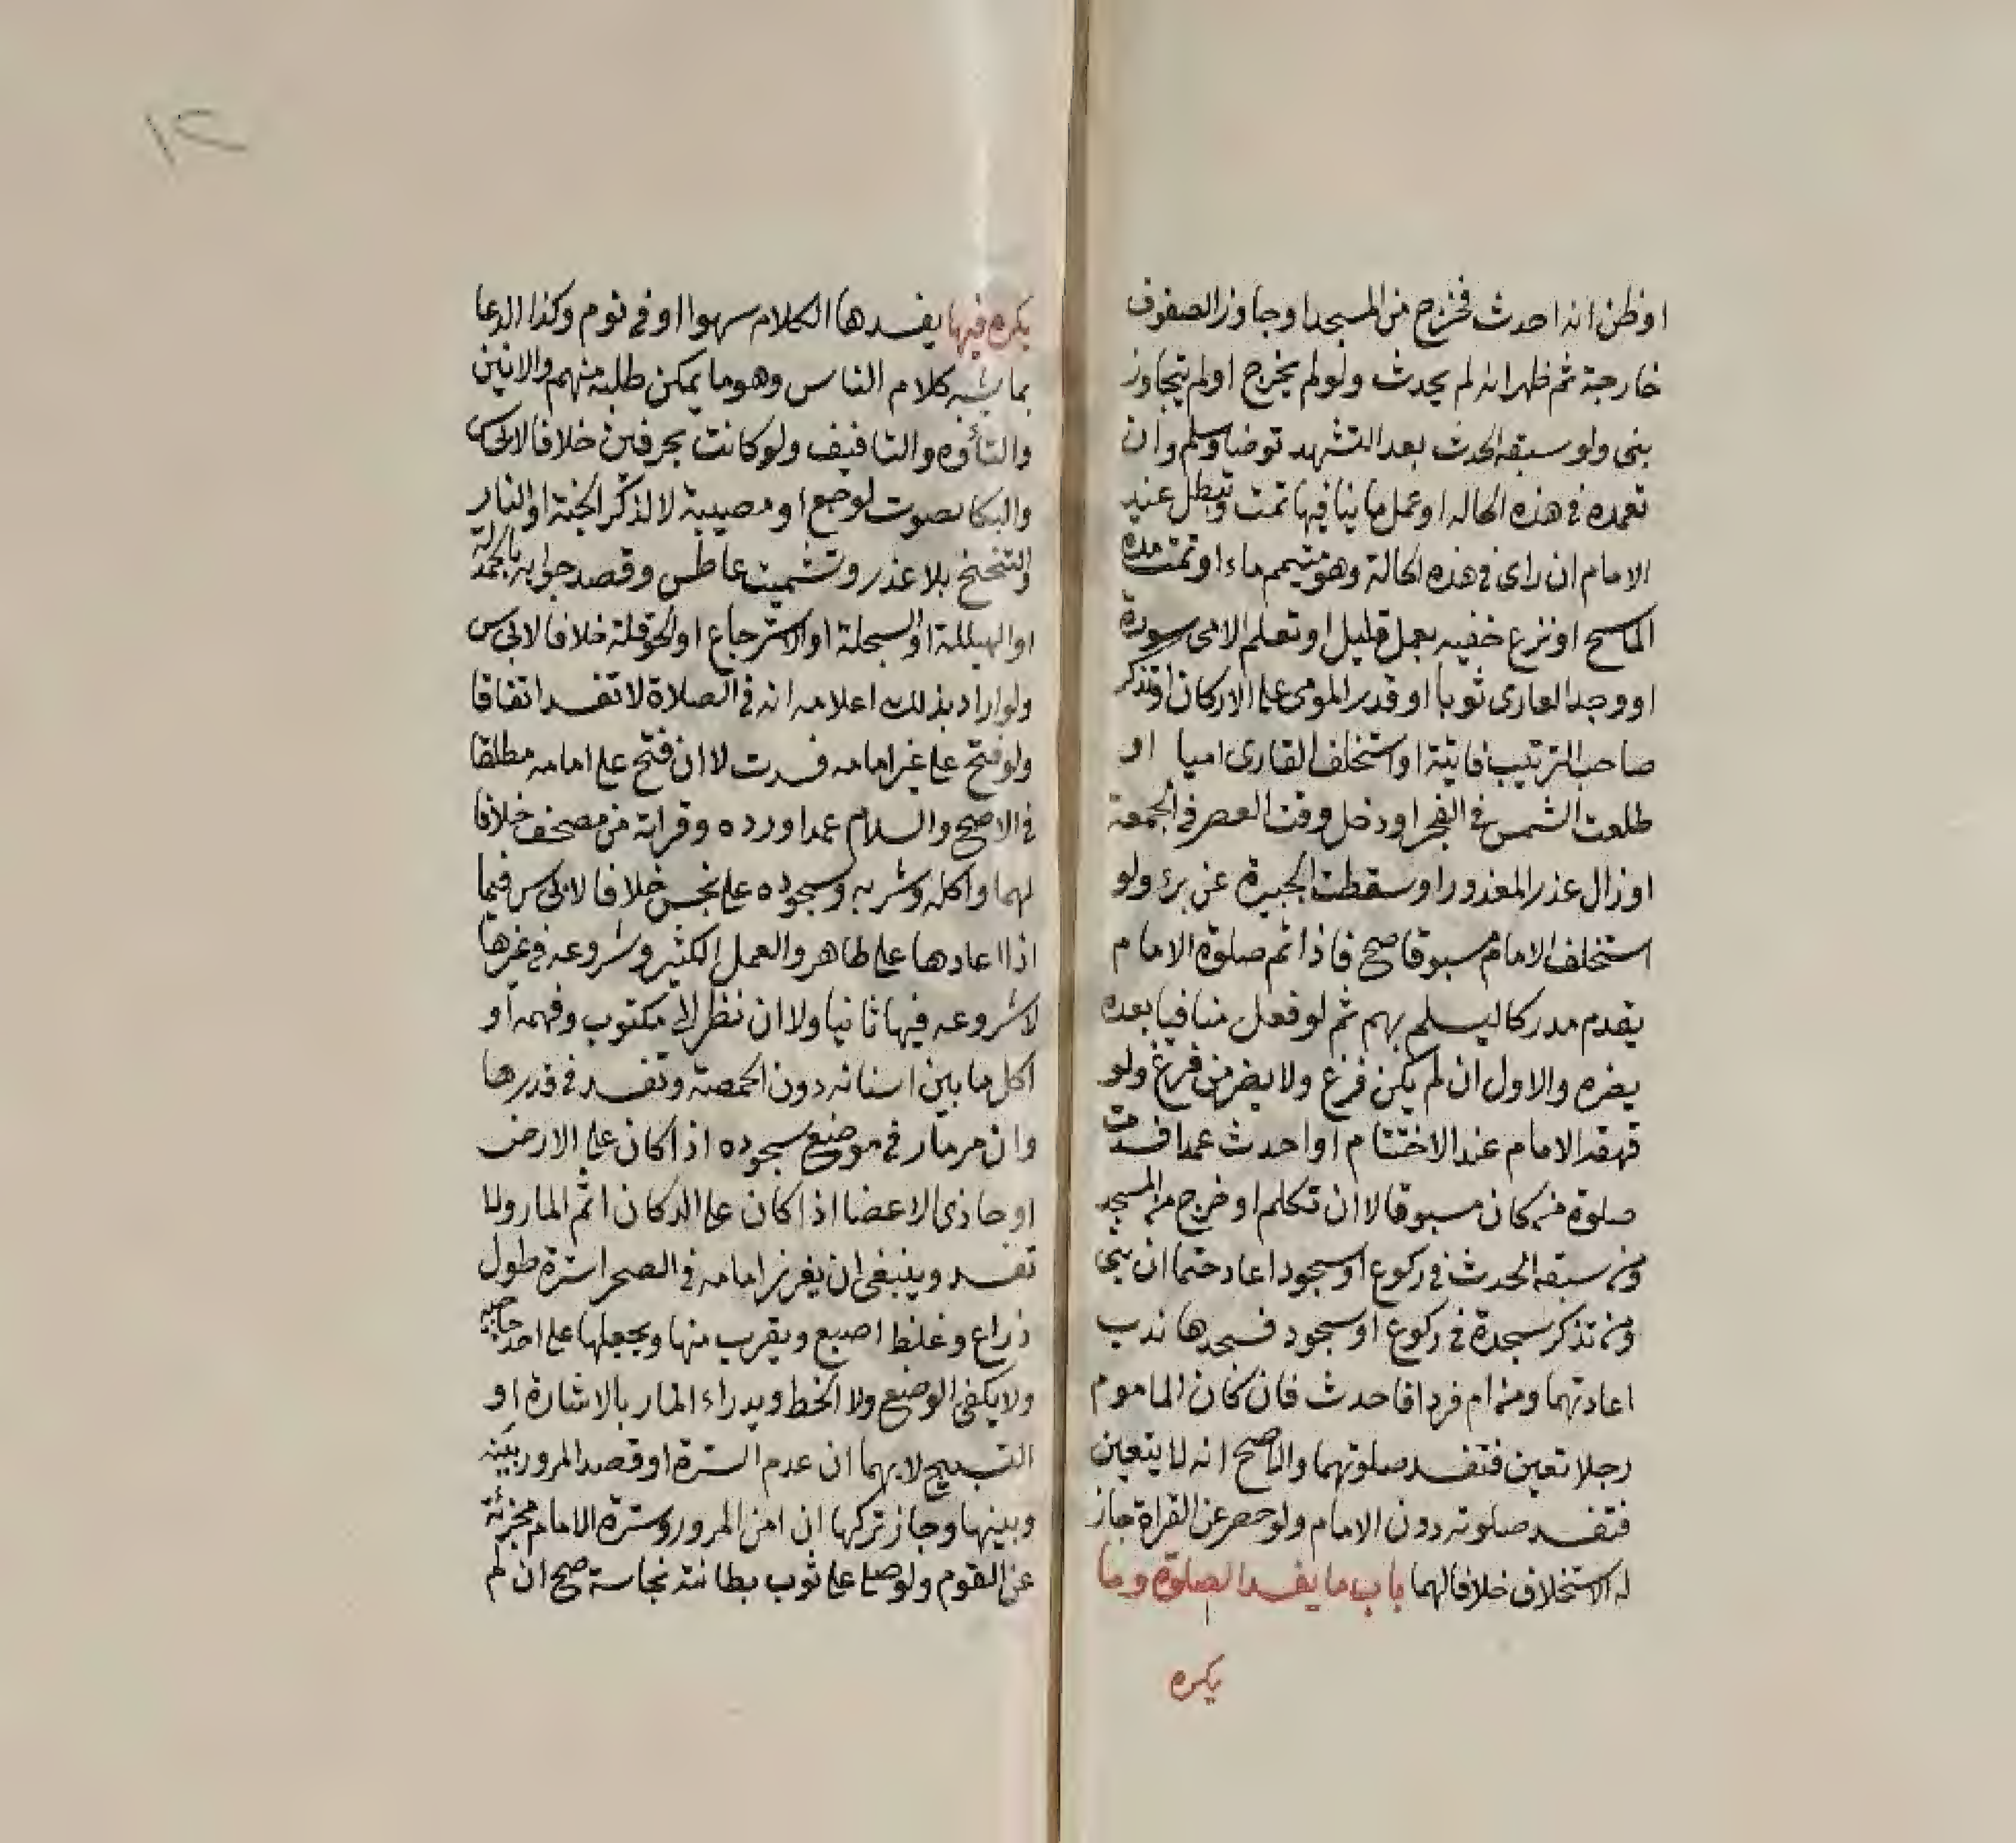 اوظن انه احدث فخرج من المسجد او جاوز الصفوف
خارجة ثم ظهر انه لم يحدث ولو لم يخرج او لم يتجاوز
بنى ولو سبقه الحدث بعد التشهد توضا وسلم وان
تعمده في هذه الحاله او عمل ما ينافيها تمت وتبطل عند
الامام ان راى في هذه الحالة وهو متيمم ماء او تمت مدة
الماسح او نزع خفيه بعمل قليل او تعلم الامى سورة
او وجد العارى ثوبا او قدر المومى على الاركان او تذكر
صاحب الترتيب فايتة او استخلف القارى اميا او
طلعت الشمس في الفجر او دخل وقت العصر في الجمعة
او زال عذر المعذور او سقطت الجبيرة عن برء ولو
استخلف الامام مسبوقا صح فاذا اتم صلوة الامام
يقدم مدركا ليسلم بهم ثم لو فعل منافيا بعده
يضره والاول ان لم يكن فرغ ولا يضر من فرغ ولو
قهقه الامام عند الاختتام او احدث عمدا فسدت
صلوة من كان مسبوقا لا ان تكلم او خرج من المسجد
ومن سبقه الحدث في ركوع او سجود اعاد حتما ان بنى
ومن تذكر سجدة في ركوع او سجود فسجدها ندب
اعادتهما ومن ام فردا فاحدث فان كان الماموم
رجلا تعين فتفسد صلوتهما والاصح انه لا يتعين
فتفسد صلوته دون الامام ولو حصر عن القراة جاز
له الاستخلاف خلافا لهما باب ما يفسد الصلوة وما
يكره
١٢
يكره فيها يفسدها الكلام سهوا او في نوم وكذا الدعا
بما يشبه كلام الناس وهو ما يمكن طلبه منهم والانين
والتأوه والتافيف ولو كانت بحرفين خلافا لابى س
والبكا بصوت لوجع او مصيبة لا لذكر الجنة او النار
والتنحنح بلا عذر وتشميت عاطس وقصد جوابه بالحمدلة
او الهيللة او السبحلة او الاسترجاع او الحوقلة خلافا لابى س
ولو اراد بذلك اعلامه انه في الصلاة لا تفسد اتفاقا
ولو فتح على غير امامه فسدت لا ان فتح على امامه مطلقا
في الاصح والسلام عمدا ورده وقراته من مصحف خلافا
لهما واكله وشربه وسجوده على نجس خلافا لابى س فيما
اذا اعادها على طاهر والعمل الكثير وشروعه في غيرها
لا شروعه فيها ثانيا ولا ان نظر الى مكتوب وفهمه او
اكل ما بين اسنانه دون الحمصة وتفسد في قدرها
وان مر مار في موضع سجوده اذا كان على الارض
او حاذى الاعضا اذا كان على الدكان اثم المار ولا
تفسد وينبغى ان يغرز امامه في الصحرا سترة طول
ذراع وغلظ اصبع ويقرب منها ويجعلها على احد حاجبيه
ولا يكفى الوضع ولا الخط ويدراء المار بالاشارة او
التسبيح لا بهما ان عدم السترة او قصد المرور بينه
وبينها وجاز تركها ان امن المرور وسترة الامام مجزئة
عن القوم ولو صلى على ثوب بطانته نجاسة صح ان لم